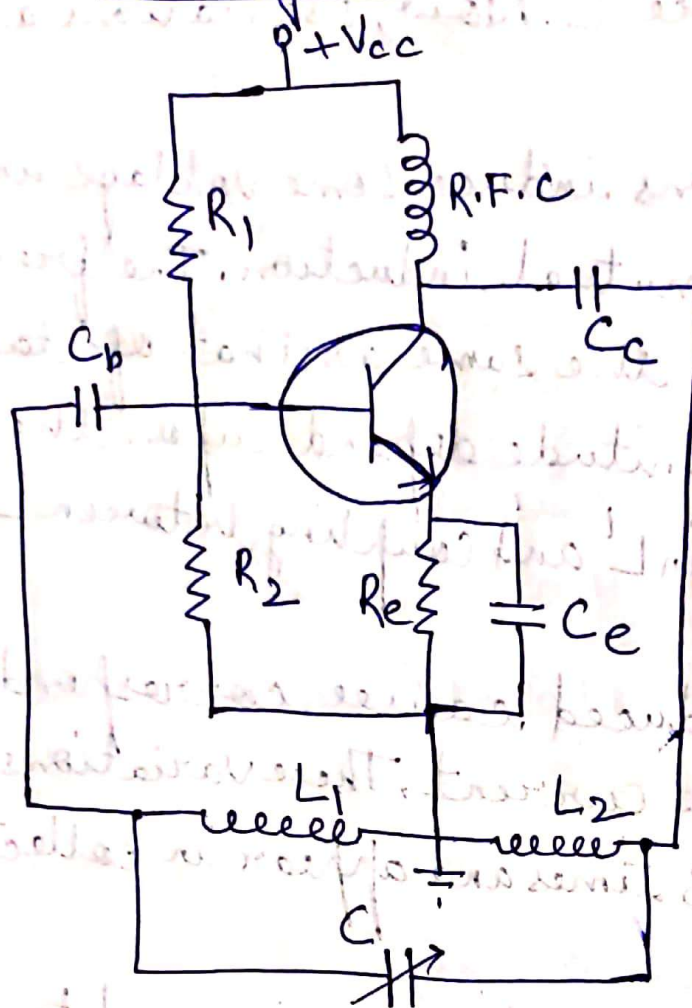 +Vcc
R1
R.F.C
Cb
Cc
R2
Re
Ce
L1
L2
C